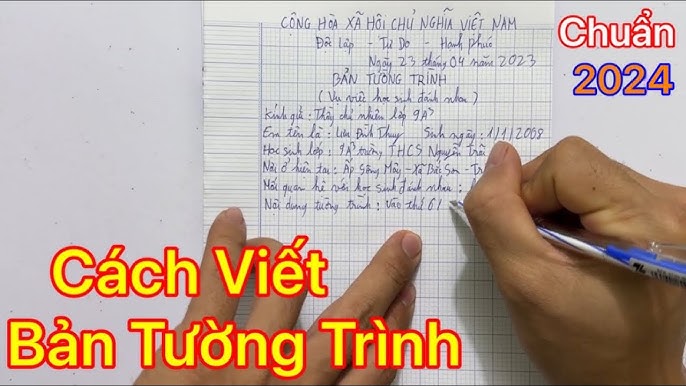 CỘNG HÒA XÃ HỘI CHỦ NGHĨA VIỆT NAM
Độc Lập - Tự Do - Hạnh Phúc
Ngày 23 tháng 04 năm 2023
BẢN TƯỜNG TRÌNH
(Vụ việc học sinh đánh nhau)
Kính gửi: Thầy chủ nhiệm lớp 9A³
Em tên là: Lưu Đình Thuy Sinh ngày: 1/1/2008
Học sinh lớp: 9A³ trường THCS Nguyễn Trãi
Nơi ở hiện tại: Ấp Sông Mây - Xã Bắc Sơn - Tr
Mối quan hệ với học sinh đánh nhau:
Nội dung tường trình: Vào thứ 6/
Chuẩn
2024
Cách Viết
Bản Tường Trình